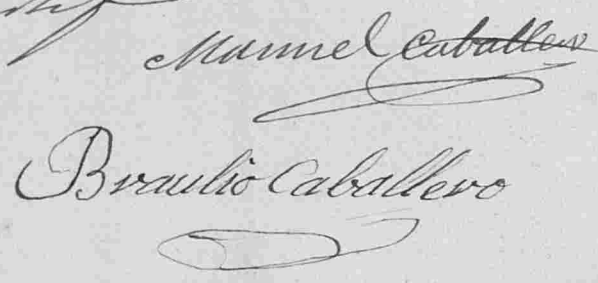 Manuel Caballero
Braulio Caballero